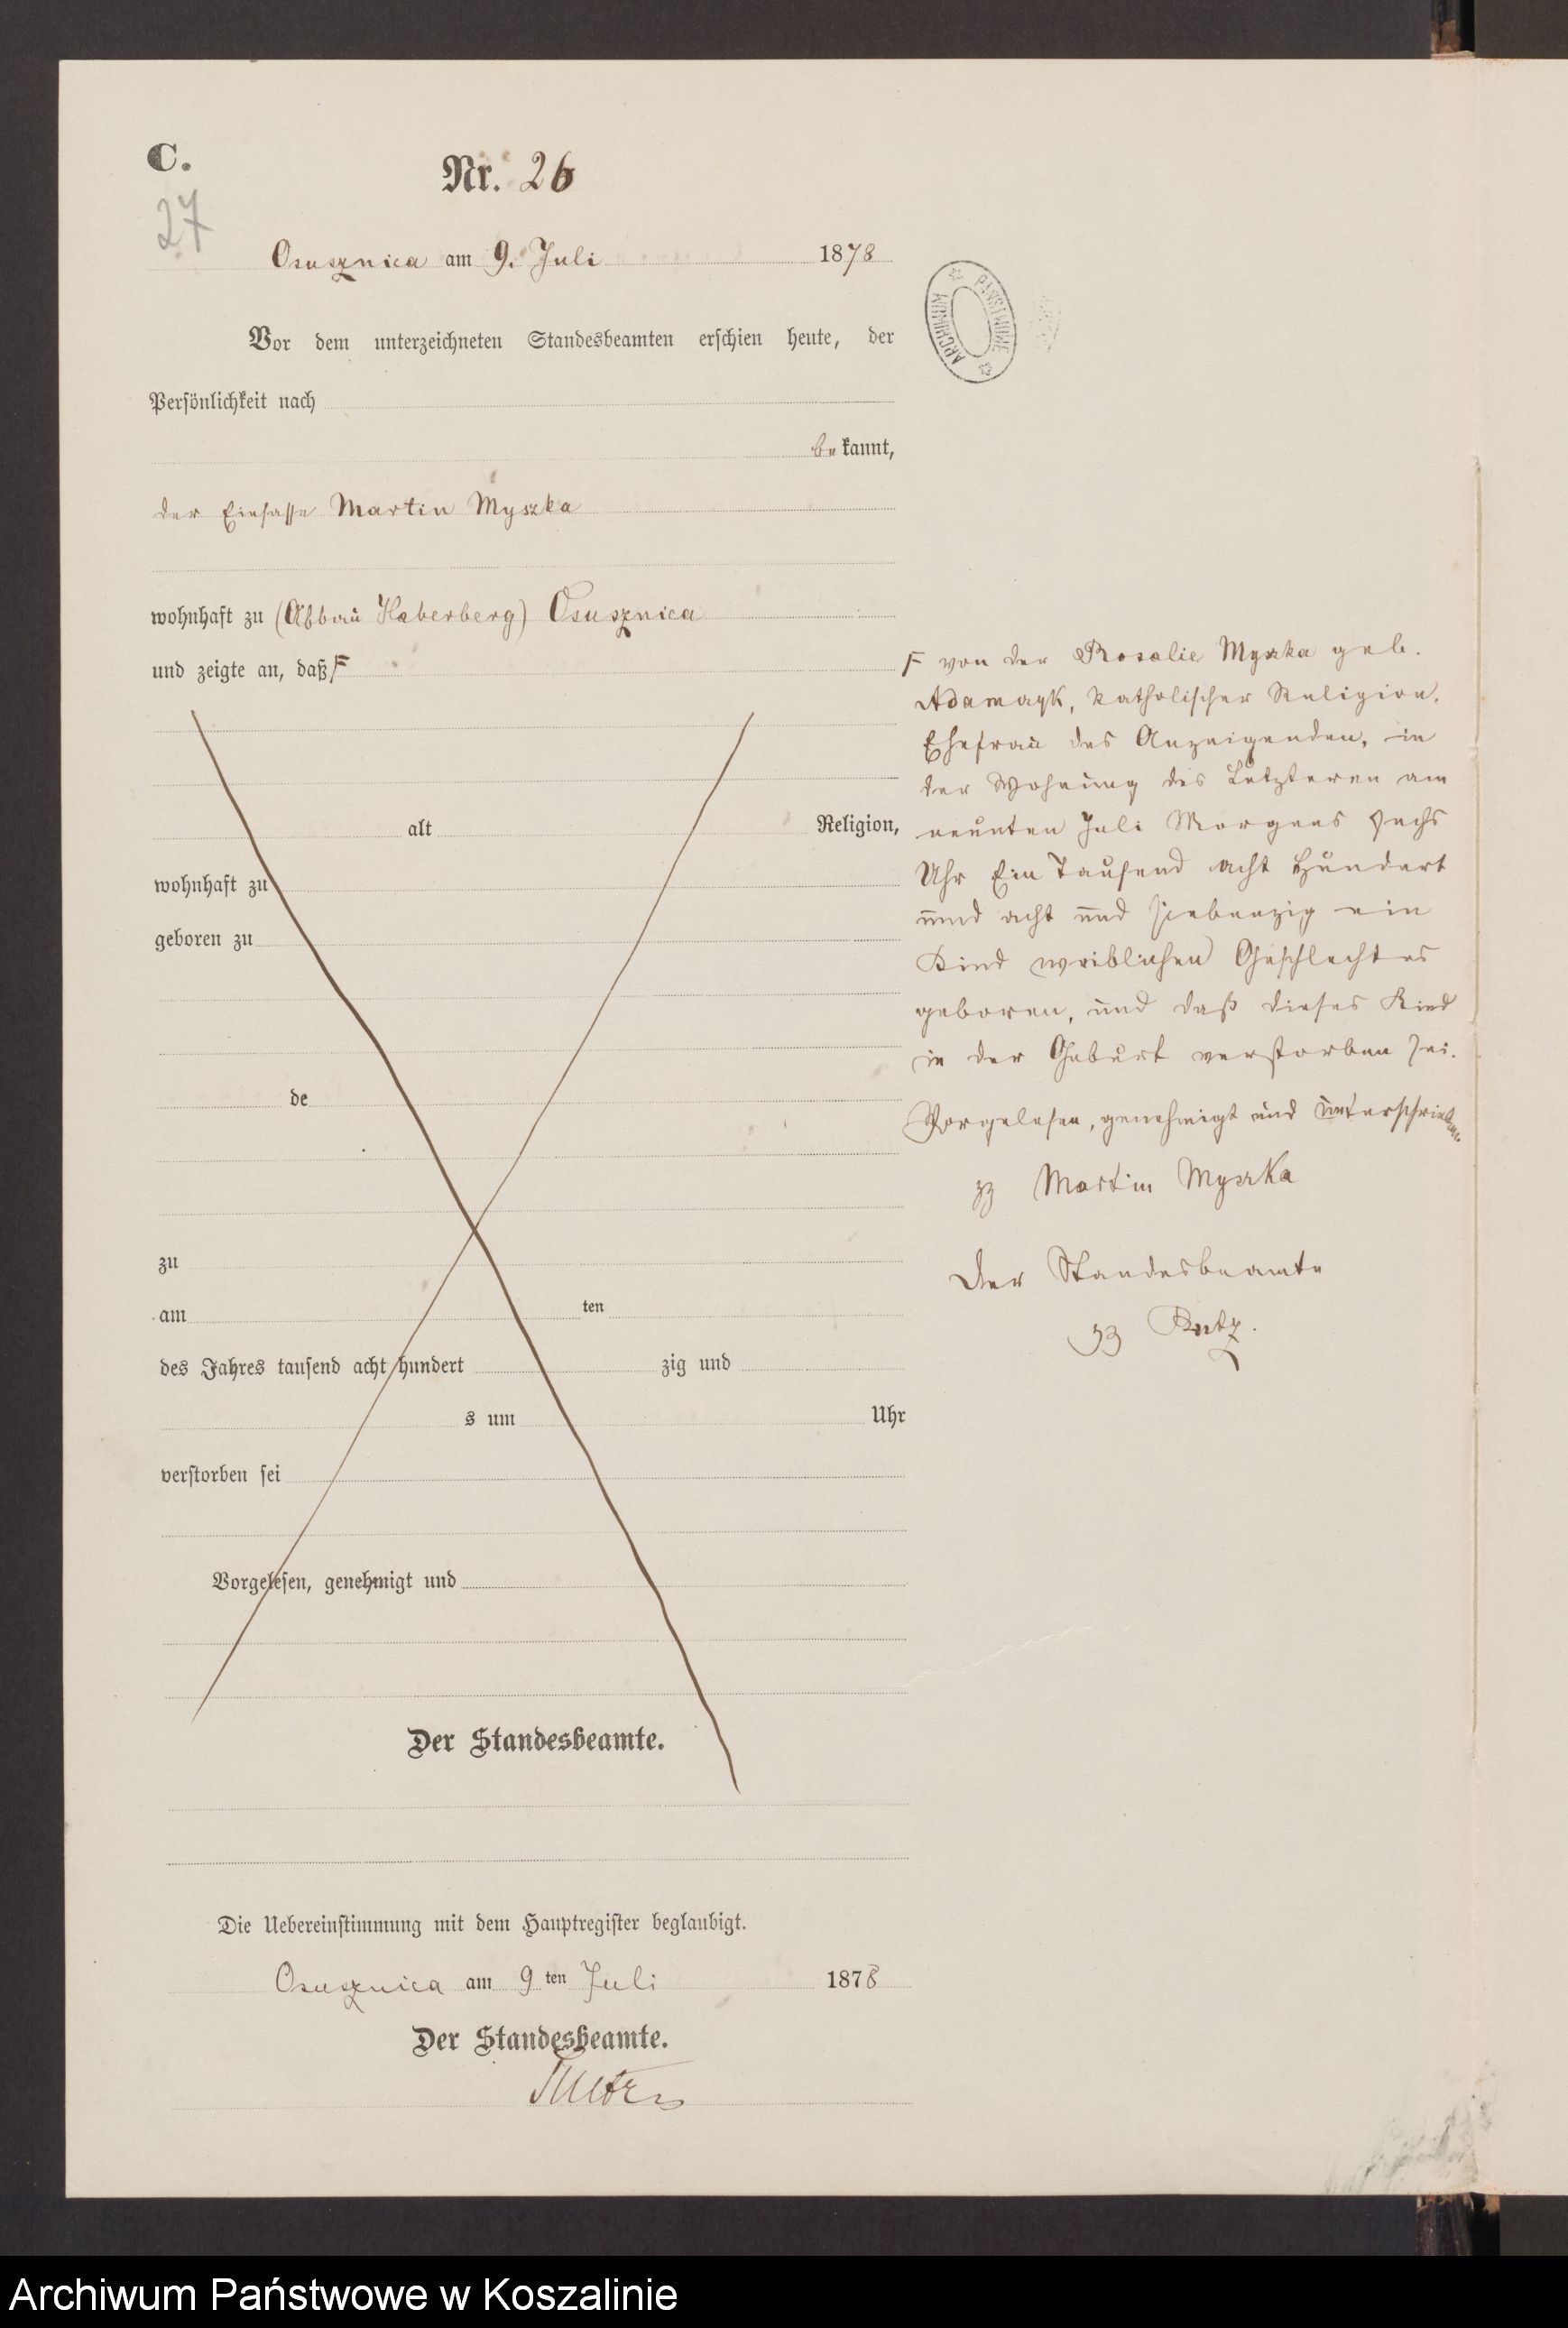 C.
Nr. 26
27
Osusznica am 9. Juli 1878
Vor dem unterzeichneten Standesbeamten erschien heute, der
Persönlichkeit nach
bekannt,
der Einsasse Martin Myszka
wohnhaft zu (Abbau Haberberg) Osusznica
und zeigte an, daß F
alt Religion,
wohnhaft zu
geboren zu
de
zu
am ten
des Jahres tausend acht hundert zig und
s um Uhr
verstorben sei
Vorgelesen, genehmigt und
Der Standesbeamte.
Die Uebereinstimmung mit dem Hauptregister beglaubigt.
Osusznica am 9 ten Juli 1878
Der Standesbeamte.
ARCHIWUM PAŃSTWOWE
F von der Rosalie Myszka geb.
Adamczyk, katholischer Religion,
Ehefrau des Anzeigenden, in
der Wohnung des Letzteren am
neunten Juli Morgens sechs
Uhr Ein Tausend acht Hundert
und acht und siebenzig ein
Kind weiblichen Geschlechtes
geboren, und daß dieses Kind
in der Geburt verstorben sei.
Vorgelesen, genehmigt und unterschrieben
gz Martin Myszka
Der Standesbeamte
gz Rutz.
Archiwum Państwowe w Koszalinie